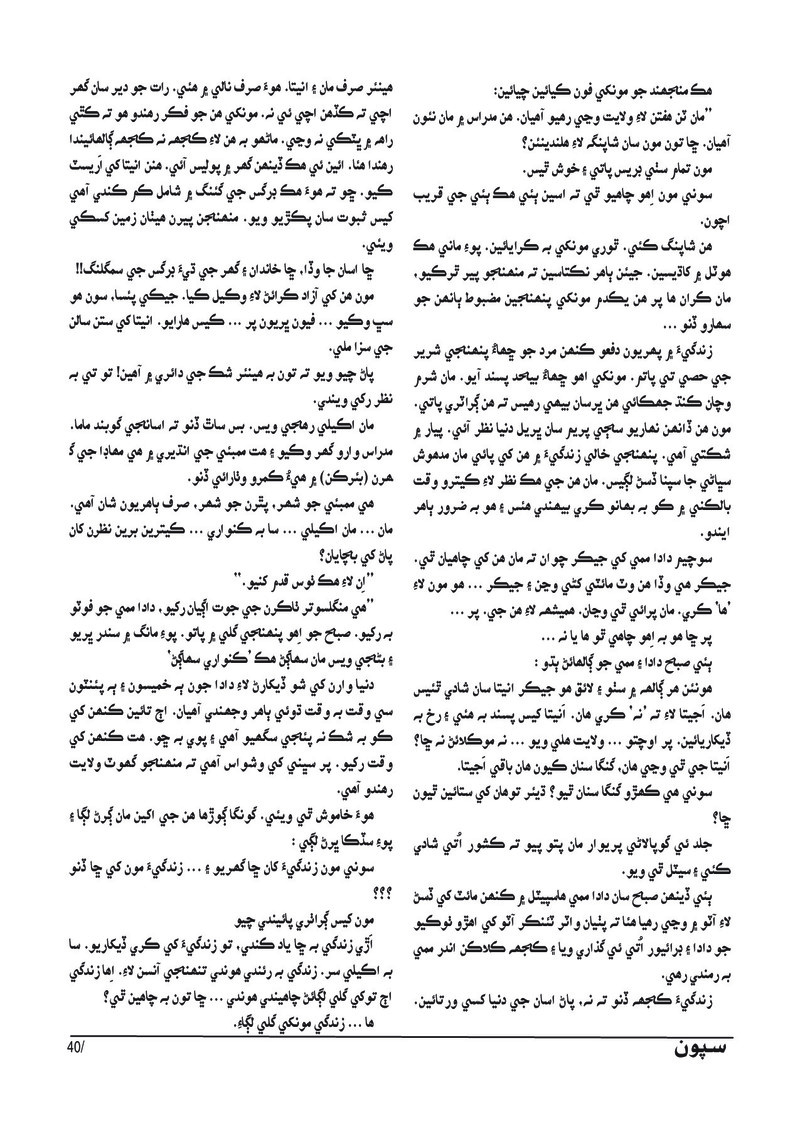 هڪ منجهند جو مونکي فون ڪيائين چيائين:
”مان ٽن هفتن لاءِ ولايت وڃي رهيو آهيان. هن مدراس ۾ مان نئون
آهيان. ڇا تون مون سان شاپنگ لاءِ هلندينئن؟
مون تمام سٺي ڊريس پاتي ۽ خوش ٿيس.
سوني مون اِهو چاهيو ٿي ته اسين ٻئي هڪ ٻئي جي قريب
اچون.
هن شاپنگ ڪئي. ٿوري مونکي به ڪرايائين. پوءِ ماني هڪ
هوٽل ۾ کاڌيسين. جيئن ٻاهر نڪتاسين ته منهنجو پير ٿرڪيو،
مان ڪران ها پر هن يڪدم مونکي پنهنجين مضبوط ٻانهن جو
سهارو ڏنو ...
زندگيءَ ۾ پهريون دفعو ڪنهن مرد جو ڇهاءُ پنهنجي شرير
جي حصي تي پاتم. مونکي اهو ڇهاءُ بيحد پسند آيو. مان شرم
وچان ڪنڌ جهڪائي هن ڀرسان بيهي رهيس ته هن ڳراٽڙي پاتي.
مون هن ڏانهن نهاريو سڄي پريم سان ڀريل دنيا نظر آئي. پيار ۾
شڪتي آهي. پنهنجي خالي زندگيءَ ۾ هن کي پائي مان مدهوش
سڀاڻي جا سپنا ڏسڻ لڳيس. مان هن جي هڪ نظر لاءِ ڪيترو وقت
بالڪني ۾ ڪو به بهانو ڪري بيهندي هئس ۽ هو به ضرور ٻاهر
ايندو.
سوچيم دادا ممي کي جيڪر چوان ته مان هن کي چاهيان ٿي.
جيڪر هي وڏا هن وٽ مائٽي کڻي وڃن ۽ جيڪر ... هو مون لاءِ
'ها' ڪري. مان پرائي ٿي وڃان. هميشه لاءِ هن جي. پر ...
پر ڇا هو به اِهو چاهي ٿو ها يا نه ...
ٻئي صبح دادا ۽ ممي جو ڳالهائڻ ٻڌو :
هونئن هر ڳالهه ۾ سٺو ۽ لائق هو جيڪر انيتا سان شادي ٿئيس
هان. اَجيتا لاءِ ته 'نه' ڪري هان. اَنيتا ڪيس پسند به هئي ۽ رخ به
ڏيکاريائين. پر اوچتو ... ولايت هلي ويو ... نه موڪلائڻ نه ڇا؟
اَنيتا جي ٿي وڃي هان، گنگا سنان ڪيون هان باقي اَجيتا.
سوني هي ڪهڙو گنگا سنان ٿيو؟ ڌيئر توهان کي ستائين ٿيون
ڇا؟
جلد ئي گوپالاڻي پريوار مان پتو پيو ته ڪشور اُتي شادي
ڪئي ۽ سيٽل ٿي ويو.
ٻئي ڏينهن صبح سان دادا ممي هاسپيٽل ۾ ڪنهن مائٽ کي ڏسڻ
لاءِ آٽو ۾ وڃي رهيا هئا ته پٺيان واٽر ٽئنڪر آٽو کي اهڙو ٺوڪيو
جو دادا ۽ ڊرائيور اُتي ئي گذاري ويا ۽ ڪجهه ڪلاڪن اندر ممي
به رمندي رهي.
زندگيءَ ڪجهه ڏنو ته نه، پاڻ اسان جي دنيا کسي ورتائين.
هينئر صرف مان ۽ انيتا. هوءَ صرف نالي ۾ هئي. رات جو دير سان گهر
اچي ته ڪڏهن اچي ئي نه. مونکي هن جو فڪر رهندو هو ته ڪٿي
راهه ۾ ڀٽڪي نه وڃي. ماڻهو به هن لاءِ ڪجهه نه ڪجهه ڳالهائيندا
رهندا هئا. ائين ئي هڪ ڏينهن گهر ۾ پوليس آئي. هنن انيتا کي اَريسٽ
ڪيو. ڇو ته هوءَ هڪ ڊرگس جي گئنگ ۾ شامل ڪم ڪندي آهي
ڪيس ثبوت سان پڪڙيو ويو. منهنجن پيرن هيٺان زمين کسڪي
ويئي.
ڇا اسان جا وڏا، ڇا خاندان ۽ گهر جي ڌيءَ ڊرگس جي سمگلنگ!!
مون هن کي آزاد ڪرائڻ لاءِ وڪيل ڪيا. جيڪي پئسا، سون هو
سڀ وڪيو ... فيون ڀريون پر ... ڪيس هارايو. انيتا کي ستن سالن
جي سزا ملي.
پاڻ چيو ويو ته تون به هينئر شڪ جي دائري ۾ آهين! تو تي به
نظر رکي ويندي.
مان اڪيلي رهجي ويس. بس ساٿ ڏنو ته اسانجي گوبند ماما.
مدراس وارو گهر وڪيو ۽ هت ممبئي جي انڌيري ۾ هي مهاڊا جي گ
هرن (بئرڪن) ۾ هيءُ ڪمرو وٺارائي ڏنو.
هي ممبئي جو شهر، پٿرن جو شهر، صرف ٻاهريون شان آهي.
مان ... مان اڪيلي ... سا به ڪنواري ... ڪيترين برين نظرن کان
پاڻ کي بچايان؟
”اِن لاءِ هڪ ٺوس قدم کنيو.“
”هي منگلسوتر ٺاڪرن جي جوت اڳيان رکيو، دادا ممي جو فوٽو
به رکيو. صبح جو اِهو پنهنجي ڳلي ۾ پاتو. پوءِ مانگ ۾ سندر ڀريو
۽ بڻجي ويس مان سهاڳڻ هڪ 'ڪنواري سهاڳڻ'
دنيا وارن کي شو ڏيکارڻ لاءِ دادا جون ٻه خميسون ۽ ٻه پئنٽون
سي وقت به وقت ڌوئي ٻاهر وجهندي آهيان. اڄ تائين ڪنهن کي
ڪو به شڪ نه پئجي سگهيو آهي ۽ پوي به ڇو. هت ڪنهن کي
وقت رکيو. پر سڀني کي وشواس آهي ته منهنجو گهوٽ ولايت
رهندو آهي.
هوءَ خاموش ٿي ويئي. گونگا ڳوڙها هن جي اکين مان ڳرڻ لڳا ۽
پوءِ سڏڪا ڀرڻ لڳي :
سوني مون زندگيءَ کان ڇا گهريو ۽ ... زندگيءَ مون کي ڇا ڏنو
؟؟؟
مون کيس ڳراٽڙي پائيندي چيو
اَڙي زندگي به ڇا ياد ڪندي، تو زندگيءَ کي ڪري ڏيکاريو. سا
به اڪيلي سر. زندگي به رئندي هوندي تنهنجي آنسن لاءِ. اِها زندگي
اڄ توکي ڳلي لڳائڻ چاهيندي هوندي ... ڇا تون به چاهين ٿي؟
ها ... زندگي مونکي ڳلي لڳاءِ.
سپون
40/